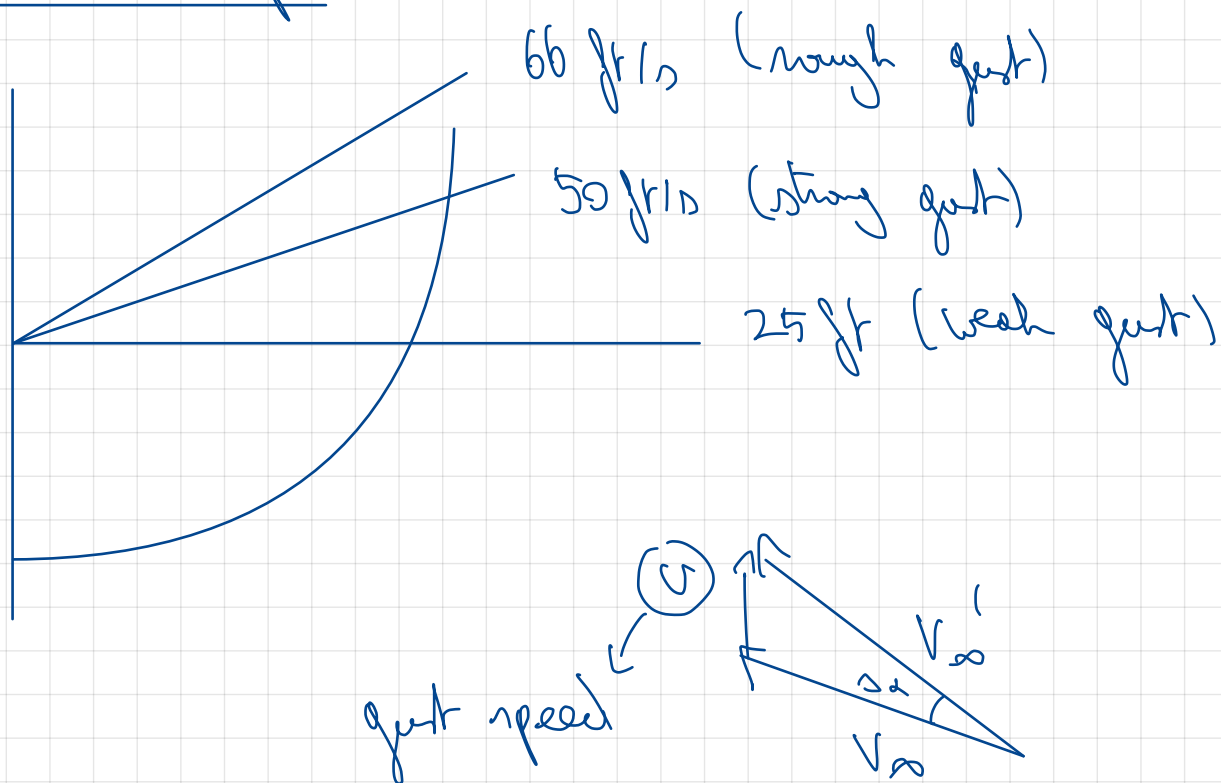 66 ft/s (rough gust)
50 ft/s (strong gust)
25 ft (weak gust)
U
V∞'
Δα
V∞
gust speed